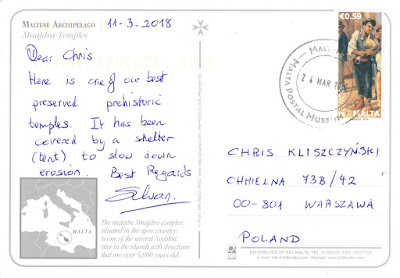 MALTESE ARCHIPELAGO
Mnajdra Temples
11-3-2018
Dear Chris
Here is one of our best
preserved prehistoric
temples. It has been
covered by a shelter
(tent) to slow down
erosion. Best Regards
MALTA
The majestic Mnajdra complex,
situated in the open country,
is one of the several Neolithic
sites in the islands with structures
that are over 5,000 years old.
€0.59
MALTA
MALTA POSTAL MUSEUM
MAR
CHRIS KLISZCZYŃSKI
CHMIELNA 73B/42
00-801 WARSZAWA
POLAND